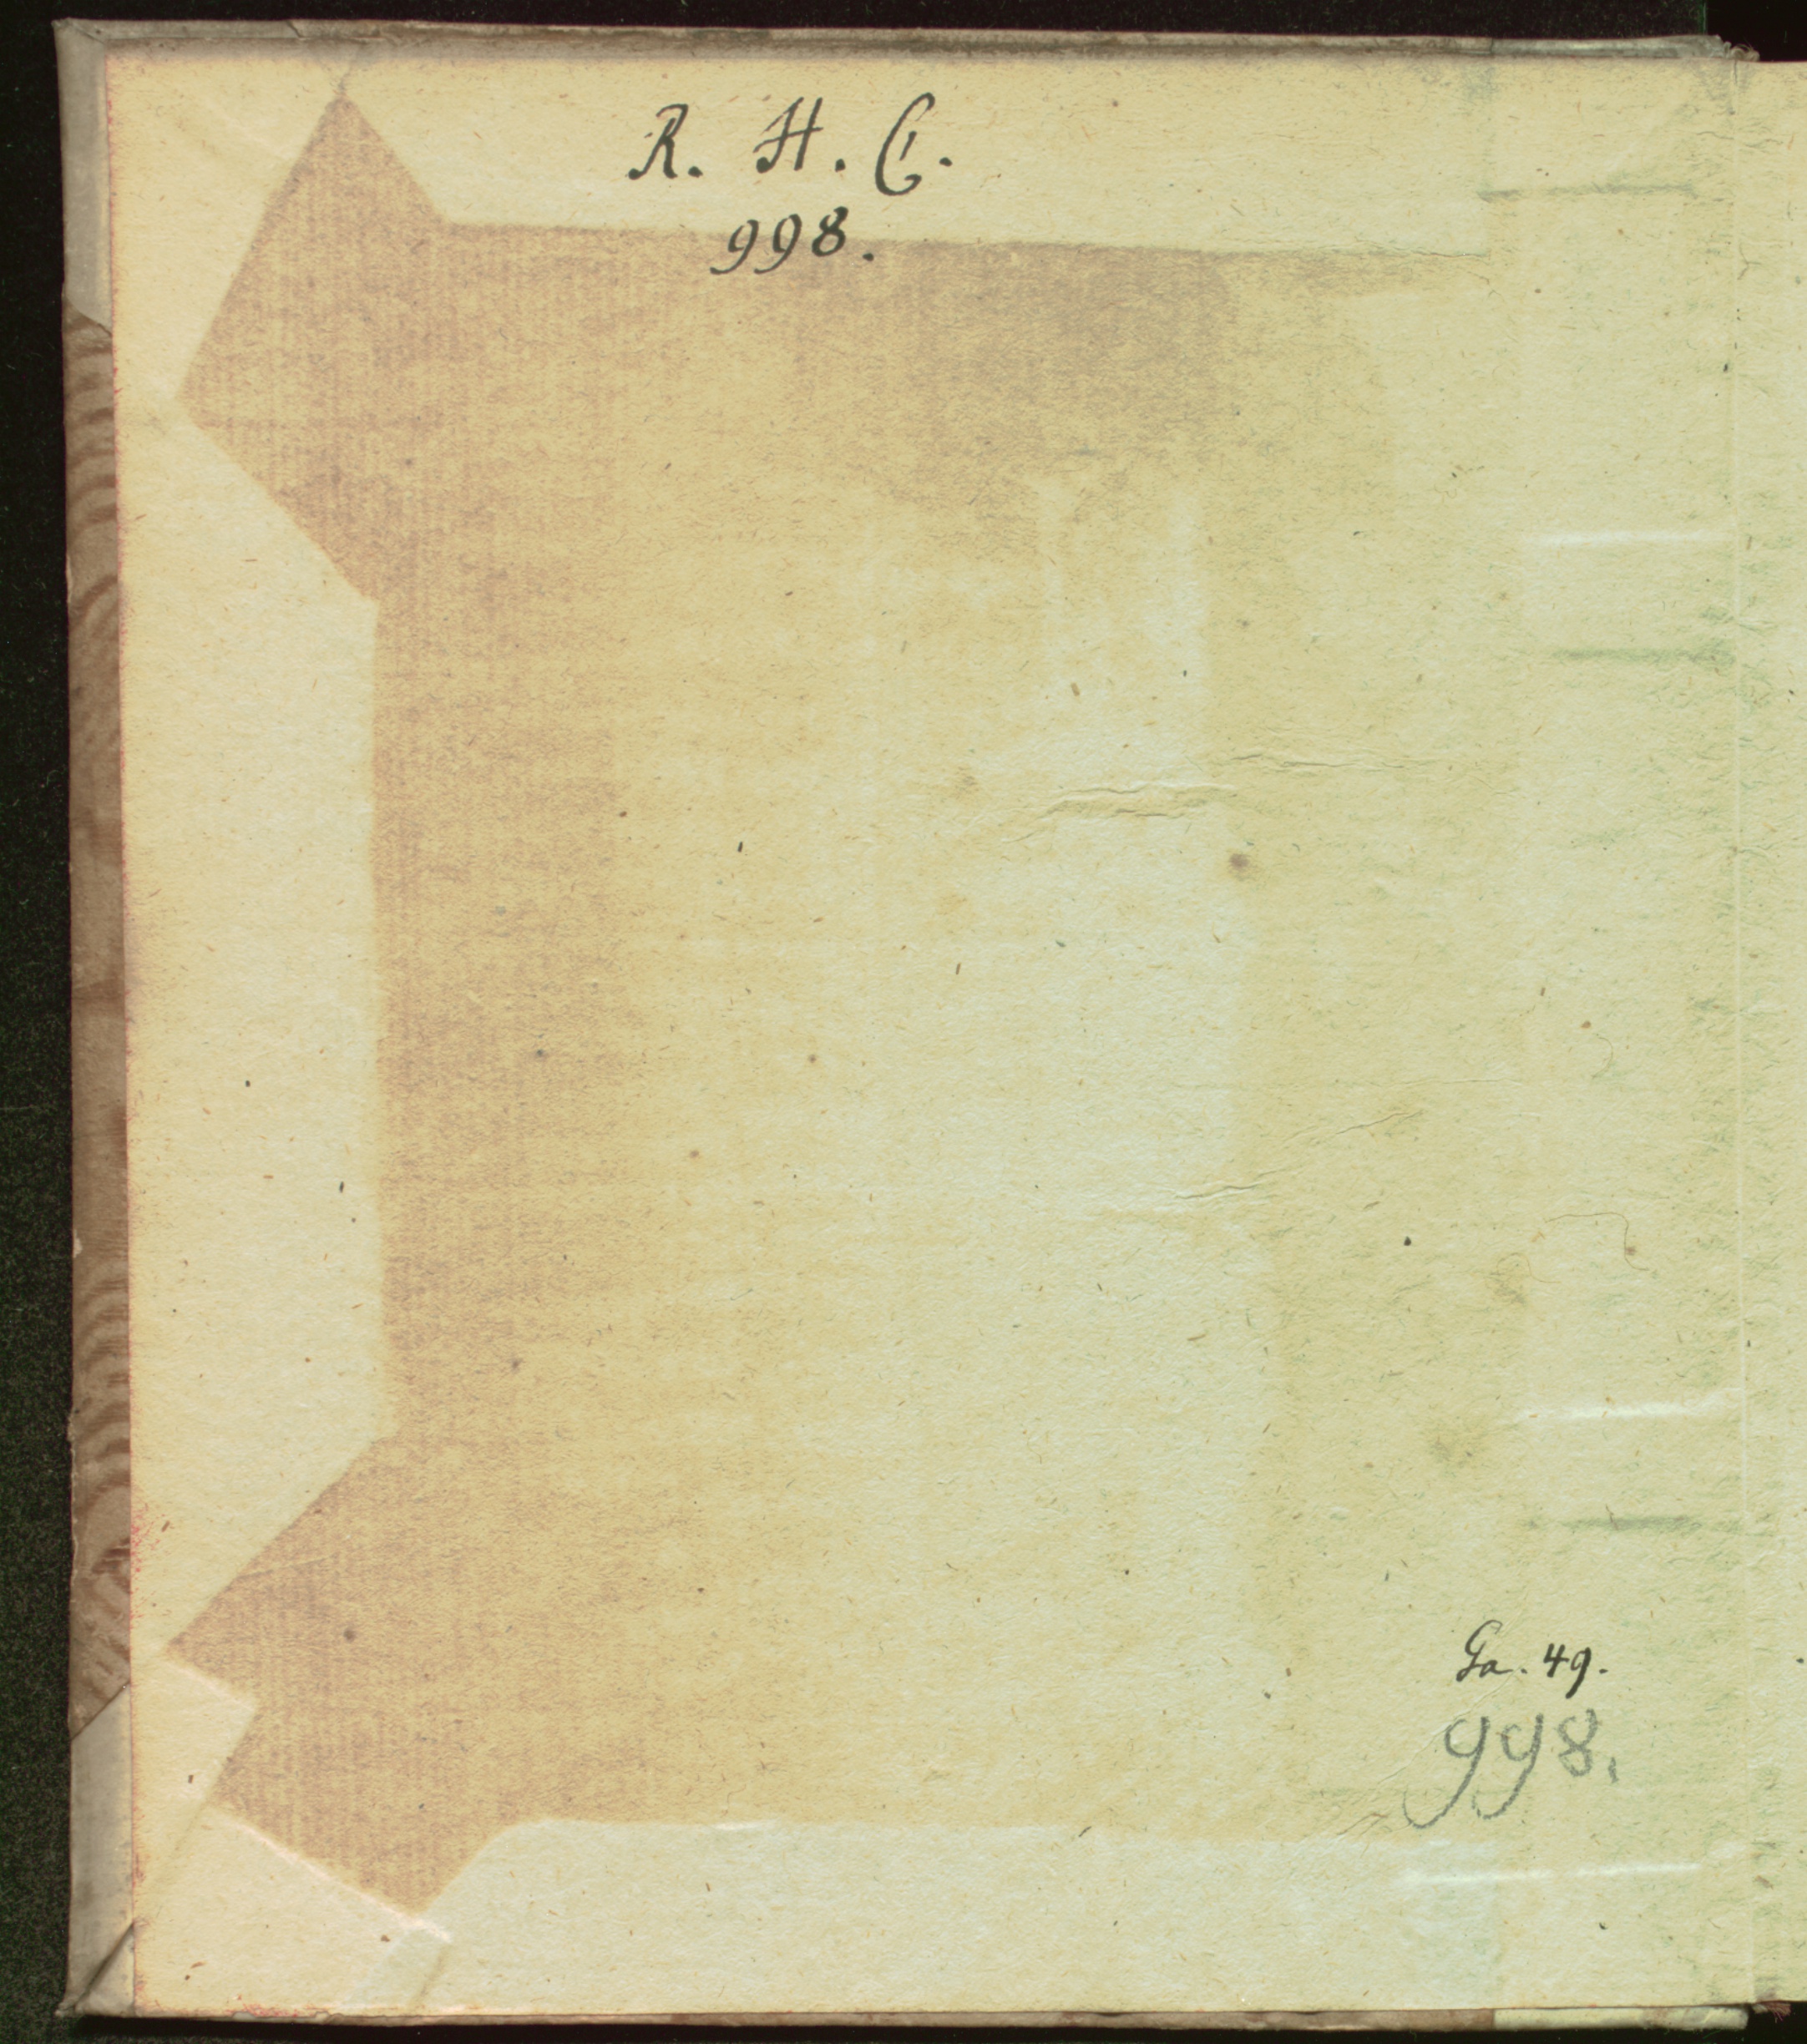 R. H. C.
998.
Ga. 49.
998.